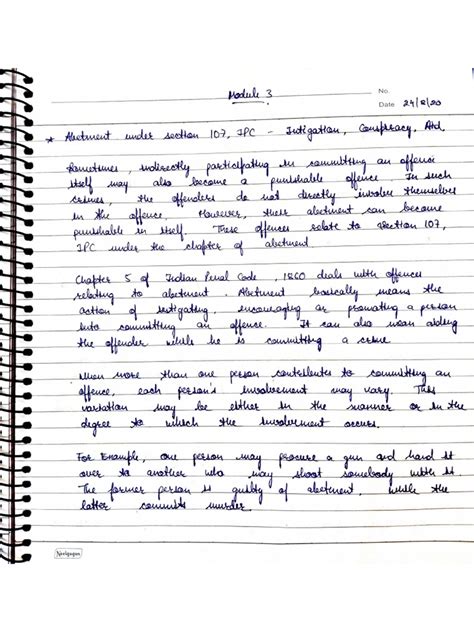 Module 3
No.
Date 24/8/20
* Abetment under section 107, IPC - Instigation, Conspiracy, Aid
Sometimes, indirectly participating in committing an offence
itself may also become a punishable offence. In such
crimes, the offenders do not directly involve themselves
in the offence. However, their abetment can become
punishable in itself. These offences relate to section 107,
IPC under the chapter of abetment.
Chapter 5 of Indian Penal Code, 1860 deals with offences
relating to abetment. Abetment basically means the
action of instigating, encouraging or promoting a person
into committing an offence. It can also mean aiding
the offender while he is committing a crime.
When more than one person contributes to committing an
offence, each person's involvement may vary. This
variation may be either in the manner or in the
degree to which the involvement occurs.
For Example, one person may procure a gun and hand it
over to another who may shoot somebody with it.
The former person is guilty of abetment, while the
latter commits murder.